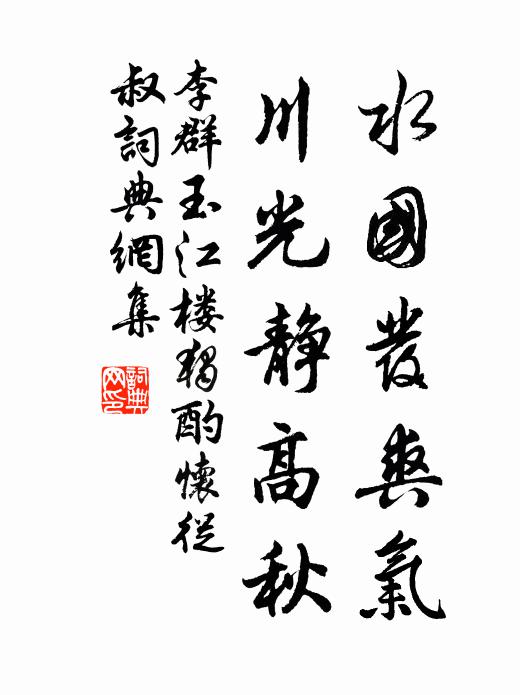 水國發爽氣
川光靜高秋
李群玉江楼獨酌懷從
叔詞典網集
詞典
网印